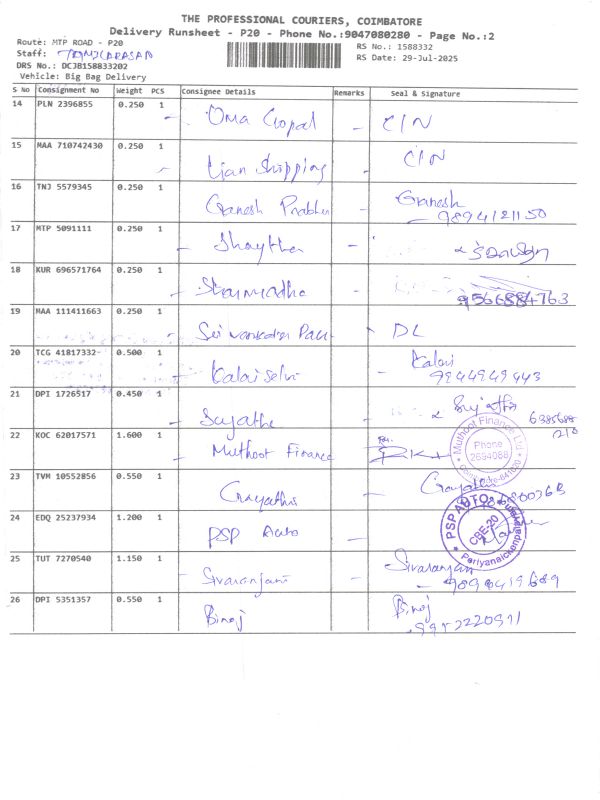 THE PROFESSIONAL COURIERS, COIMBATORE
Delivery Runsheet - P20 - Phone No.:9047080280 - Page No.:2
Route: MTP ROAD - P20
RS No.: 1588332
Staff:
RS Date: 29-Jul-2025
DRS No.: DCJB158833202
Vehicle: Big Bag Delivery
S No Consignment No Weight PCS Consignee Details Remarks Seal & Signature
14 PLN 2396855 0.250 1 Oma Gopal C/N
15 MAA 710742430 0.250 1 Lian Shipping C/N
16 TNJ 5579345 0.250 1 Ganesh Prabhu Ganesh
9894121150
17 MTP 5091111 0.250 1
18 KUR 696571764 0.250 1
9566884763
19 MAA 111411663 0.250 1 Sri DL
20 TCG 41817332 0.500 1 Kalai Selvi Kalai
9944949443
21 DPI 1726517 0.450 1 Sujatha Sujatha
6385688
210
22 KOC 62017571 1.600 1 Muthoot Finance
Muthoot Finance Ltd
Phone
2694088
23 TVM 10552856 0.550 1 Gayathri Gayathri
24 EDQ 25237934 1.200 1 PSP Auto
PSP AUTO
CBE-20
25 TUT 7270540 1.150 1 Sivaranjani Sivaranjani
26 DPI 5351357 0.550 1 Binoj Binoj